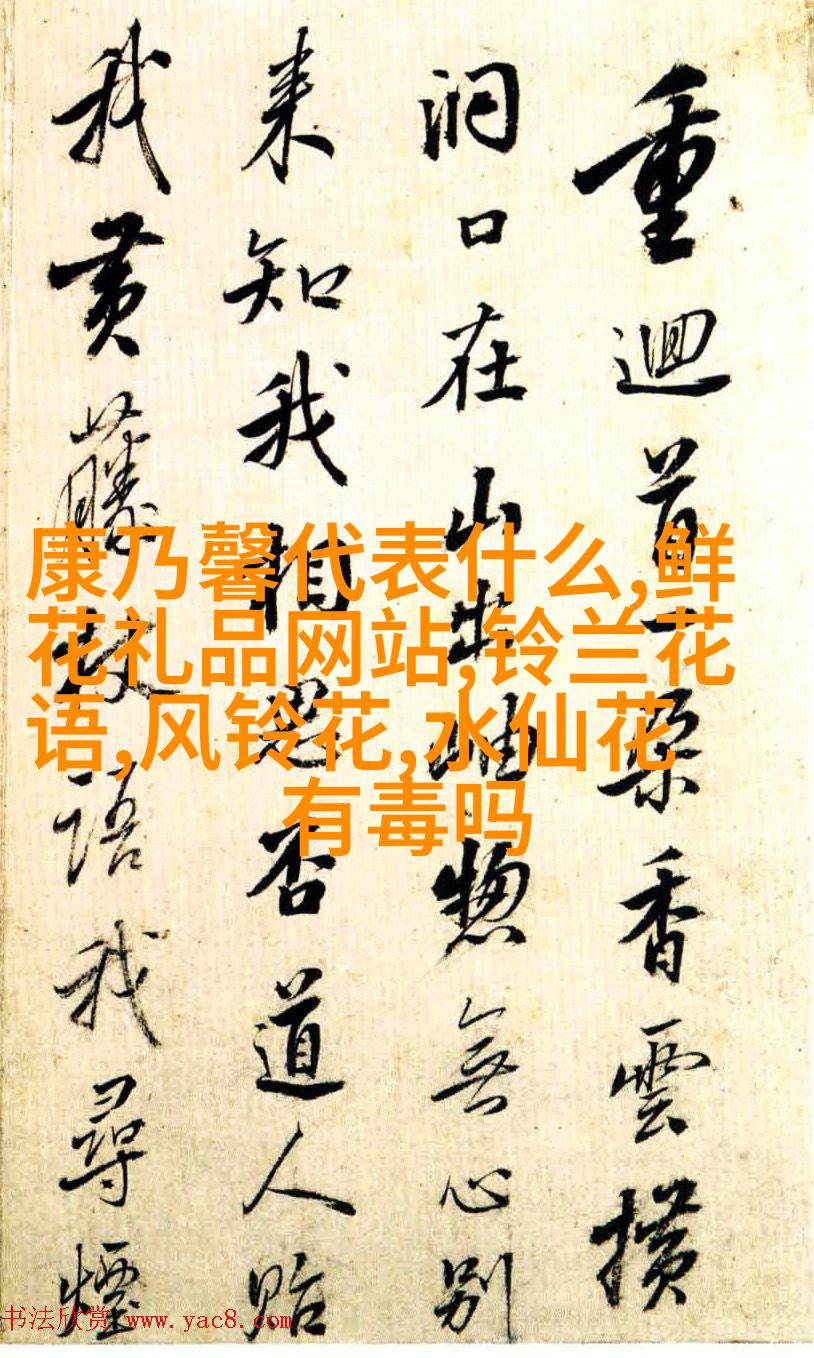 重迴首一朵香雲横
洞口在山出岫惣無心别
来知我相思否道人贻
我黄藤杖語我尋煙
康乃馨代表什么,鲜
花礼品网站,铃兰花
语,风铃花,水仙花
有毒吗
书法欣赏 www.yac8.com